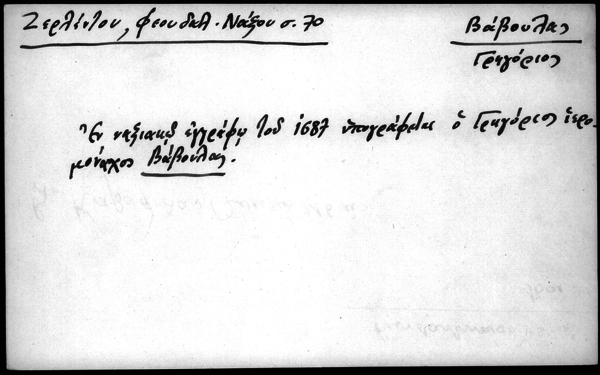 Ζερλέντου, Φεουδαλ. Νάξου σ. 70
Βάβουλας
Γρηγόριος
Ἐν ναξιακῷ ἐγγράφῳ τοῦ 1687 ὑπογράφεται ὁ Γρηγόριος ἱερο-
μόναχος Βάβουλας.